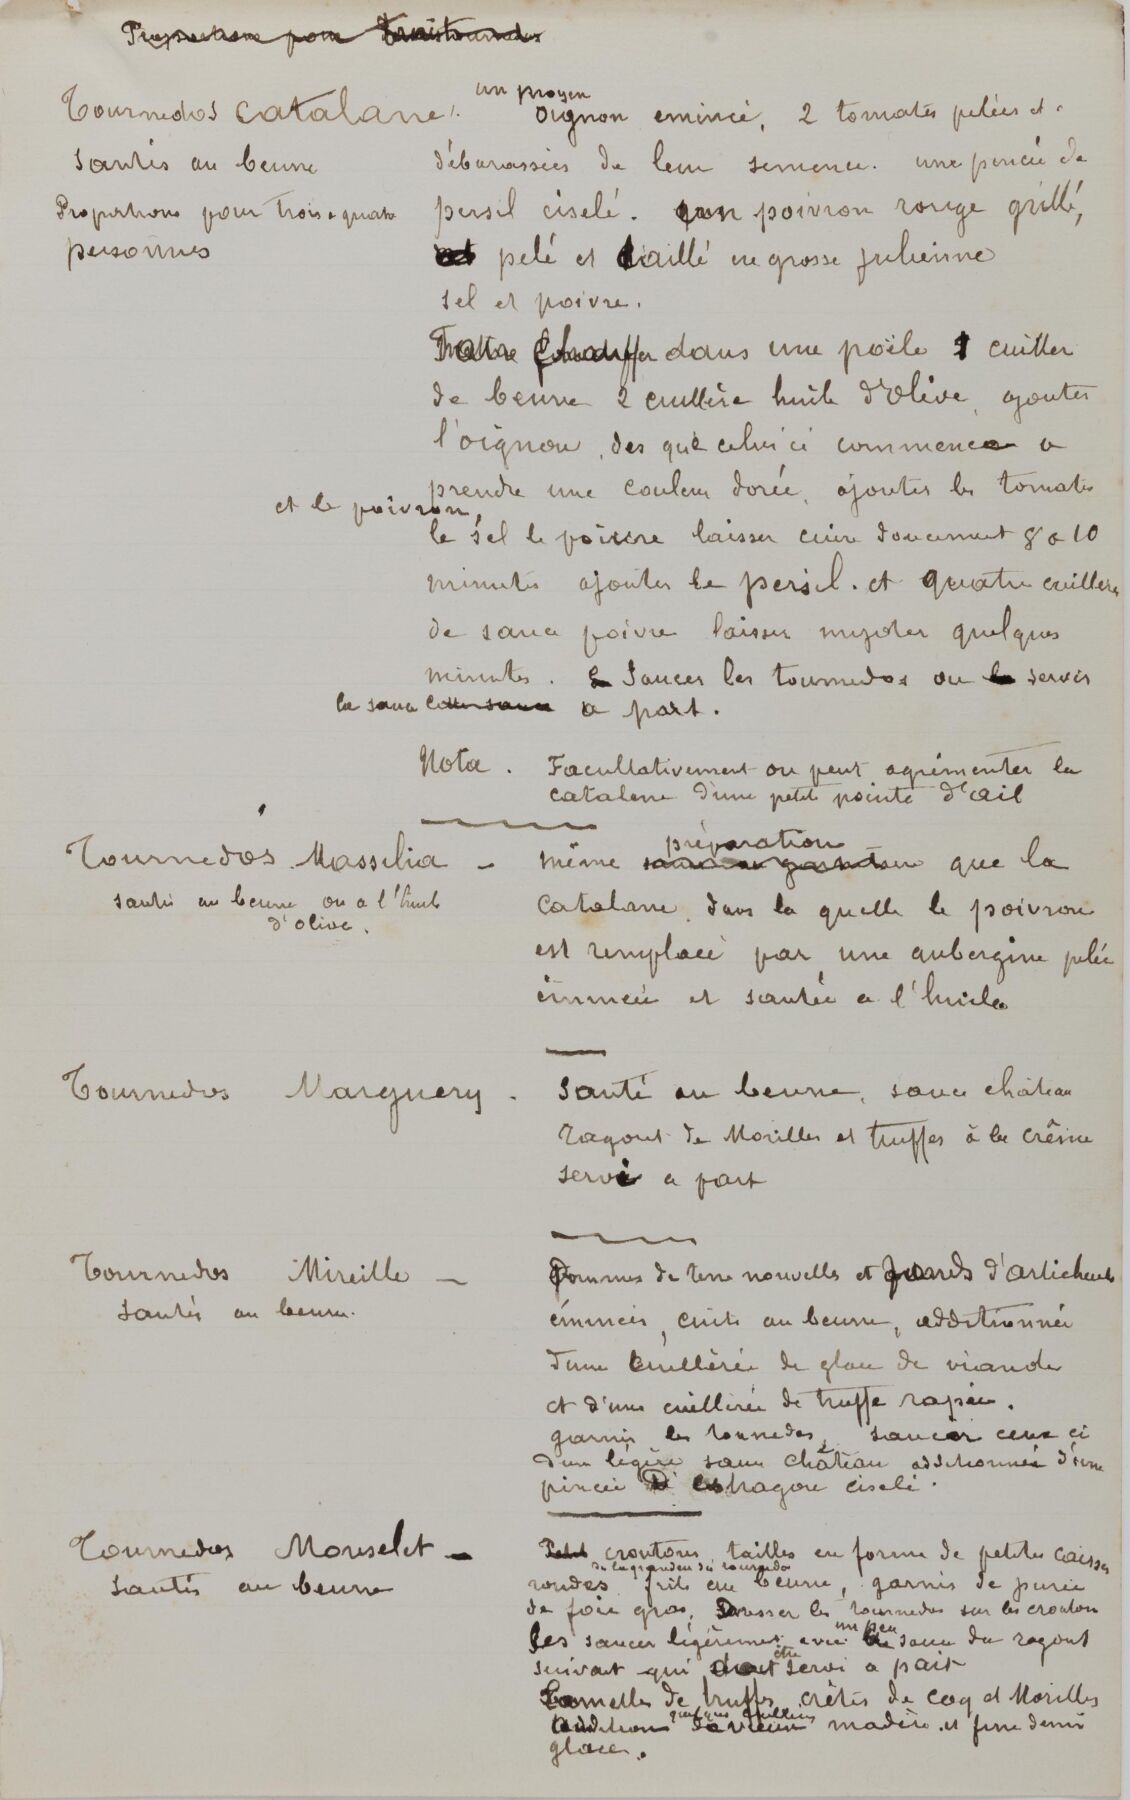 Proportions pour
Tournedos Catalane.
Sautés au beurre
Proportions pour trois a quatre
personnes
un moyen
oignon émincé, 2 tomates pelées et
débarassées de leur semence. une pincée de
persil ciselé. un poivron rouge grillé,
pelé et taillé en grosse julienne
sel et poivre.
Faire chauffer dans une poële 1 cuiller
de beurre 2 cuillère huile d'olive, ajouter
l'oignon, des que celui ci commence a
prendre une couleur dorée, ajouter les tomates
et le poivron,
le sel le poivre laisser cuire doucement 8 a 10
minutes ajouter le persil. et quatre cuilleres
de sauce poivre laisser mijoter quelques
minutes. Saucer les tournedos ou servir
la sauce cette sauce a part.
Nota. Facultativement on peut agrémenter la
catalane d'une petite pointe d'ail
Tournedos Massilia –
sautés au beurre ou a l'huile
d'olive.
préparation
même que la
Catalane, dans la quelle le poivron
est remplacé par une aubergine pelée
émincée et sautée a l'huile
Tournedos Marguery. Sauté au beurre, sauce château
ragout de Morilles et truffes à la crême
servi a part
Tournedos Mireille –
sautés au beurre.
Pommes de terre nouvelles et fonds d'artichauts
émincés, cuits au beurre, additionnée
d'une cuillèrée de glace de viande
et d'une cuillerée de truffe rapée.
garnir les tournedos, saucer ceux ci
d'une légère sauce château additionnée d'une
pincée D'estragon ciselé.
Tournedos Monselet –
sautés au beurre
Petit croutons taillés en forme de petites caisses
de la grandeur du tournedos
rondes frits au beurre, garnis de purée
de foie gras. Dresser les tournedos sur les croutons
un peu
les saucer légèrement avec la sauce du ragout
être
suivant qui doit servi a part
Lamelles de truffes, crêtes de coq et Morilles
quelques cuillères
Addition de vieux madère et fine demi
glace.